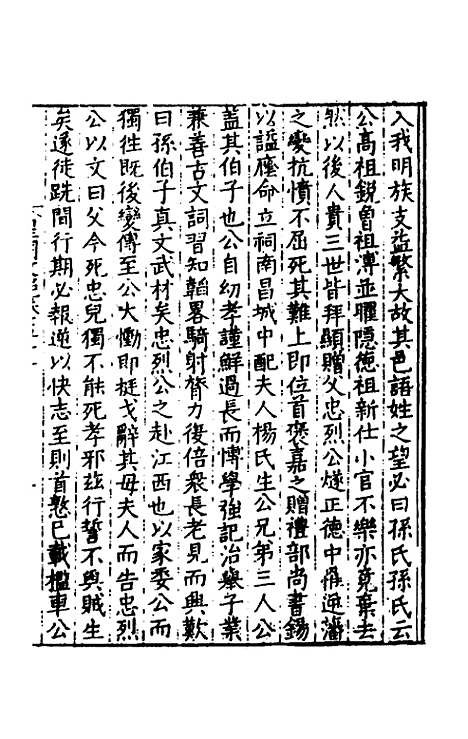 入我明族支益繁大故其邑語姓之望必曰孫氏孫氏云
公高祖銳曾祖溥並曜隱德祖新仕小官不樂亦竟棄去
然以後人貴三世皆拜顯贈父忠烈公燧正德中罹逆藩
之變抗憤不屈死其難上即位首褒嘉之贈禮部尚書錫
以謚廕命立祠南昌城中配夫人楊氏生公兄弟三人公
蓋其伯子也公自幼孝謹鮮過長而博學強記治舉子業
兼善古文詞習知韜畧騎射膂力復倍衆長老見而興歎
曰孫伯子真文武材矣忠烈公之赴江西也以家委公而
獨往既後變傳至公大慟即挺戈辭其母夫人而告忠烈
公以文曰父今死忠兒獨不能死孝邪玆行誓不與賊生
矣遂徒跣間行期必報逆以快志至則首憝已載檻車公